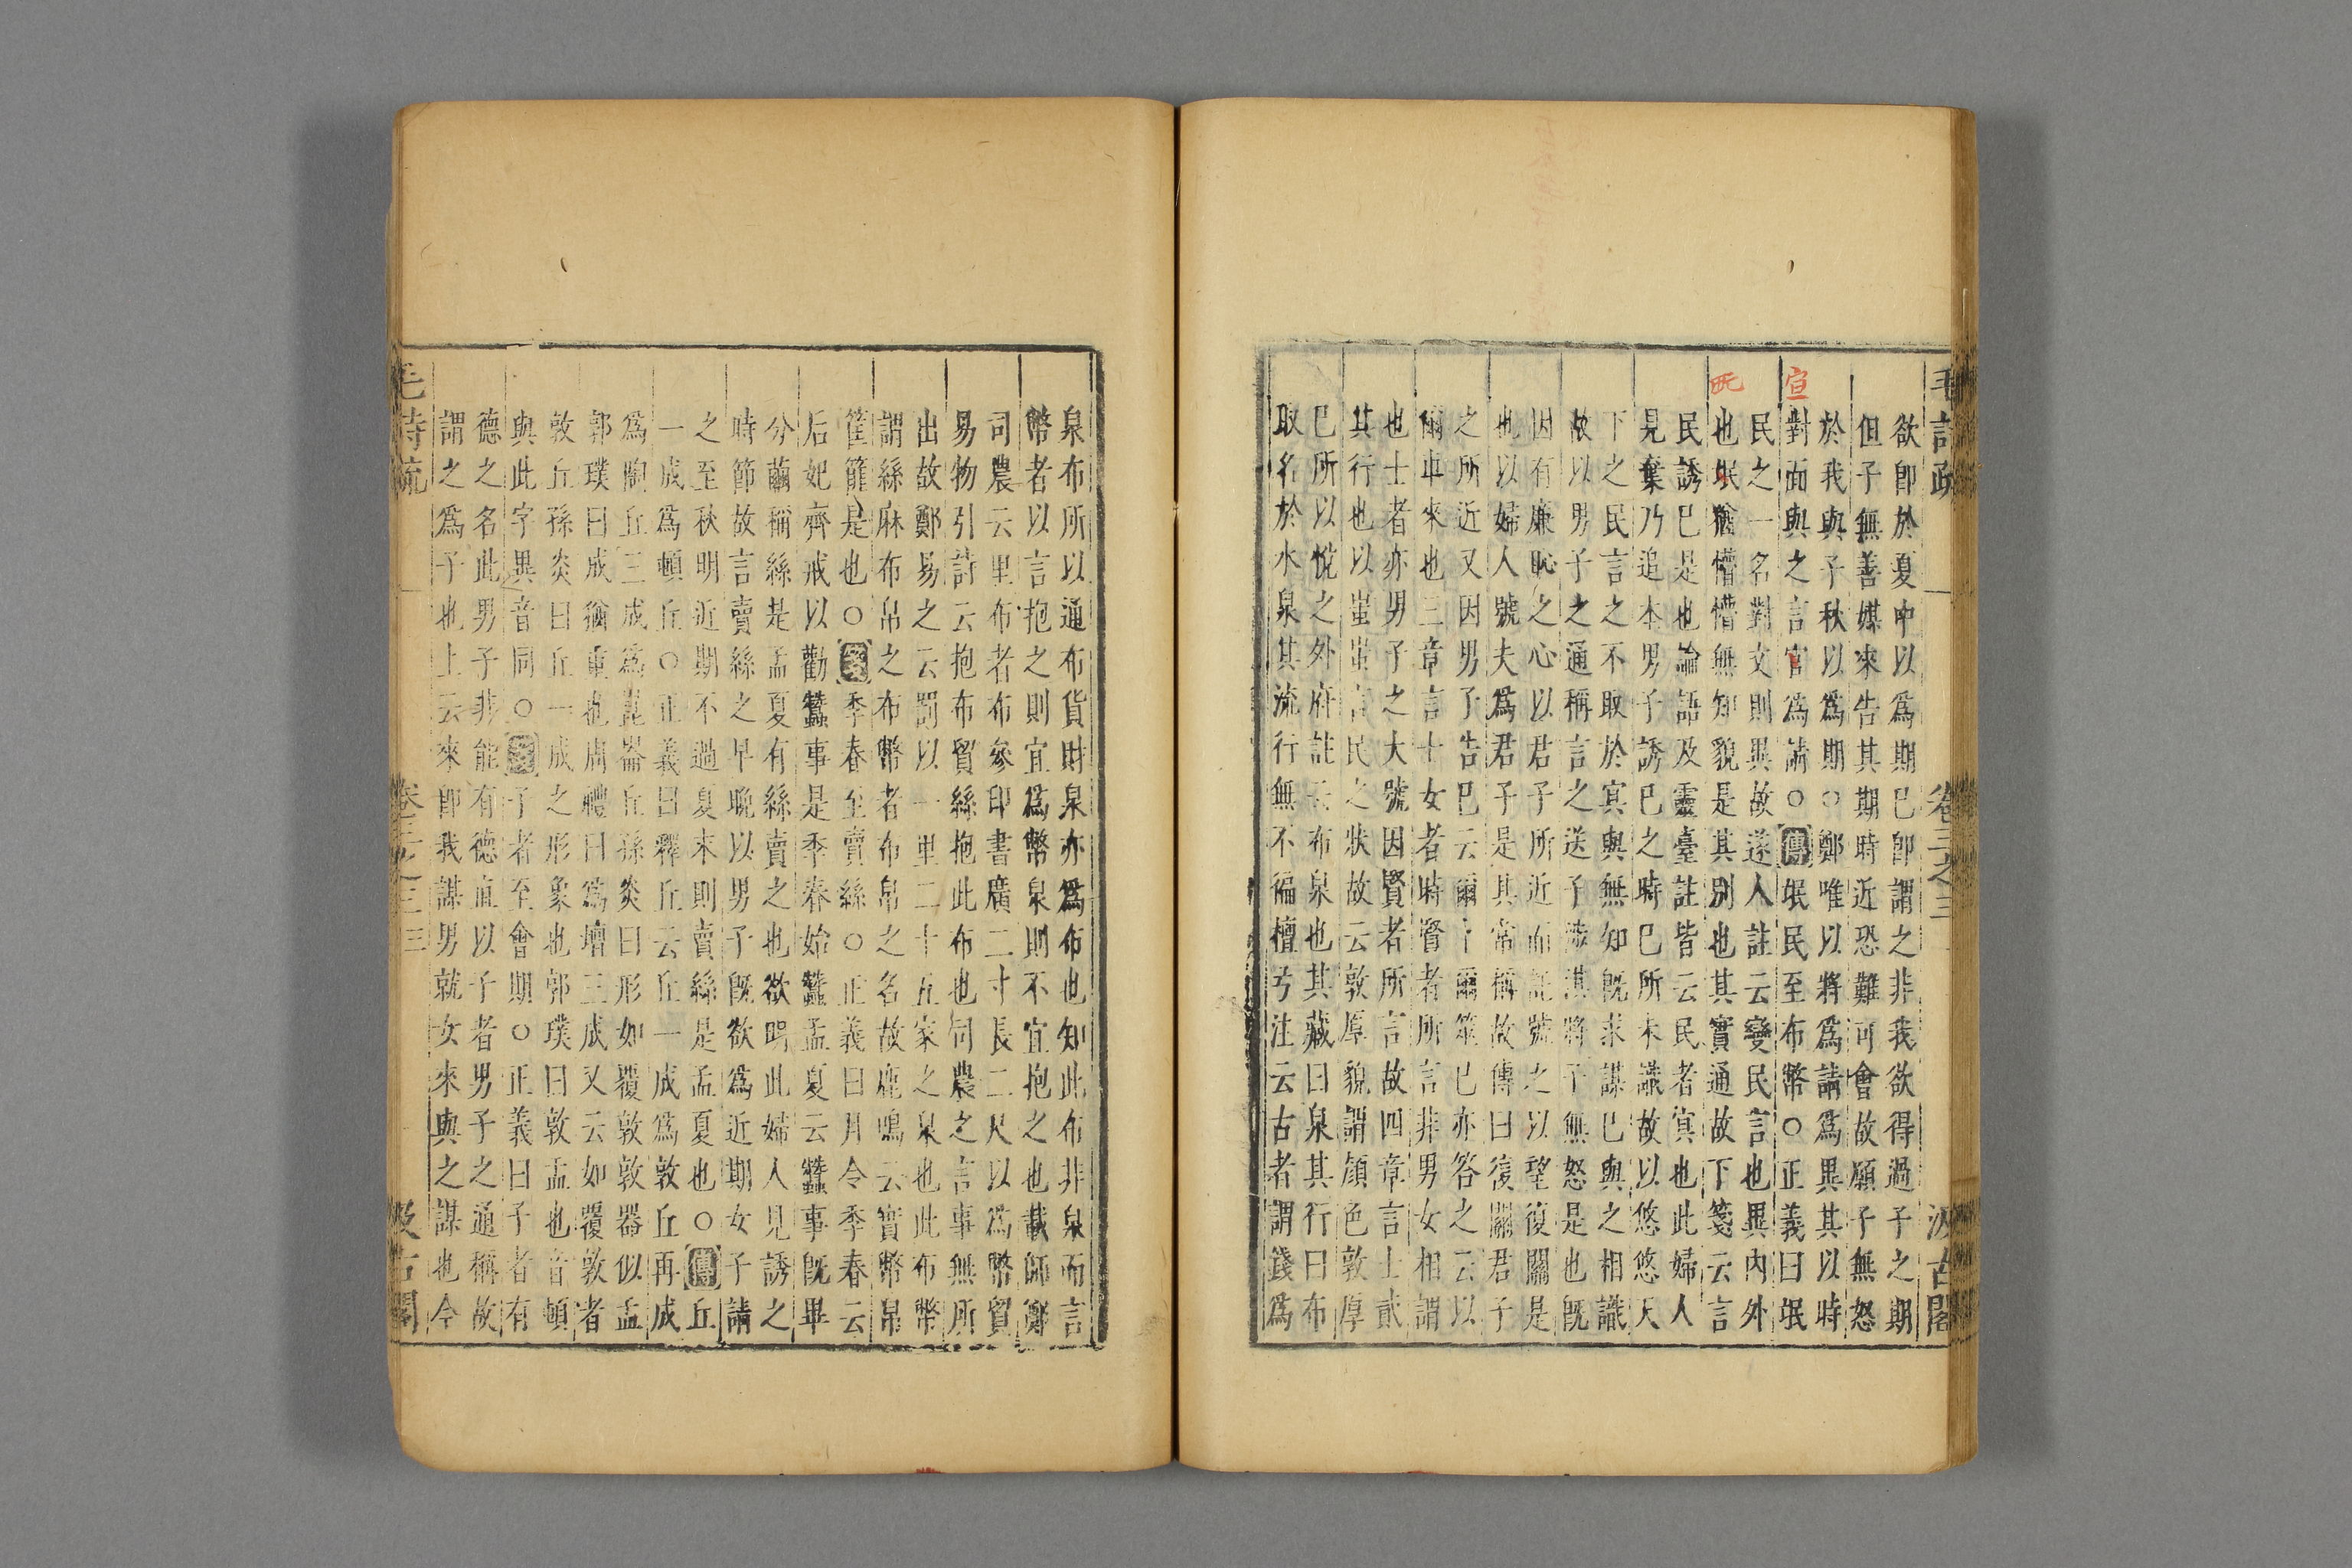 毛詩疏 卷三之三 汲古閣
欲卽於夏中以爲期巳卽謂之非我欲得過子之期
但子無善媒來告其期時近恐難可會故願子無怒
於我與子秋以爲期○鄭唯以將爲請爲異其以時
對面與之言宜爲請○傳氓民至布幣○正義曰氓
宣
民之一名對文則異故遂人註云變民言也異內外
也氓猶懵懵無知貌是其別也其實通故下箋云言
氓
民誘巳是也論語及靈臺註皆云民者冥也此婦人
見棄乃追本男子誘巳之時巳所未識故以悠悠天
下之民言之不取於冥與無知旣求謀巳與之相識
故以男子之通稱言之送子涉淇將子無怒是也旣
因有廉恥之心以君子所近而託號之以望復關是
也以婦人號夫爲君子是其常稱故傳曰復關君子
之所近又因男子告巳云爾卜爾筮巳亦答之云以
爾車來也三章言士女者時賢者所言非男女相謂
也士者亦男子之大號因賢者所言故四章言士貳
其行也以蚩蚩言民之狀故云敦厚貌謂顔色敦厚
巳所以悅之外府註云布泉也其藏曰泉其行曰布
取名於水泉其流行無不徧檀弓注云古者謂錢爲
泉布所以通布貨財泉亦爲布也知此布非泉而言
幣者以言抱之則宜爲幣泉則不宜抱之也載師鄭
司農云里布者布參印書廣二寸長二尺以爲幣貿
易物引詩云抱布貿絲抱此布也司農之言事無所
出故鄭易之云罰以一里二十五家之泉也此布幣
謂絲麻布帛之布幣者布帛之名故鹿鳴云實幣帛
筐篚是也○箋季春至賣絲○正義曰月令季春云
后妃齊戒以勸蠶事是季春始蠶孟夏云蠶事旣畢
分繭稱絲是孟夏有絲賣之也欲明此婦人見誘之
時節故言賣絲之早晚以男子旣欲爲近期女子請
之至秋明近期不過夏末則賣絲是孟夏也○傳丘
一成爲頓丘○正義曰釋丘云丘一成爲敦丘再成
爲陶丘三成爲崑崙丘孫炎曰形如覆敦敦器似盂
郭璞曰成猶重也周禮曰爲壇三成又云如覆敦者
敦丘孫炎曰丘一成之形象也郭璞曰敦盂也音頓
與此字異音同○箋子者至會期○正義曰子者有
德之名此男子非能有德直以子者男子之通稱故
謂之爲子也上云來卽我謀男就女來與之謀也今
毛詩疏 卷三之三 三 汲古閣